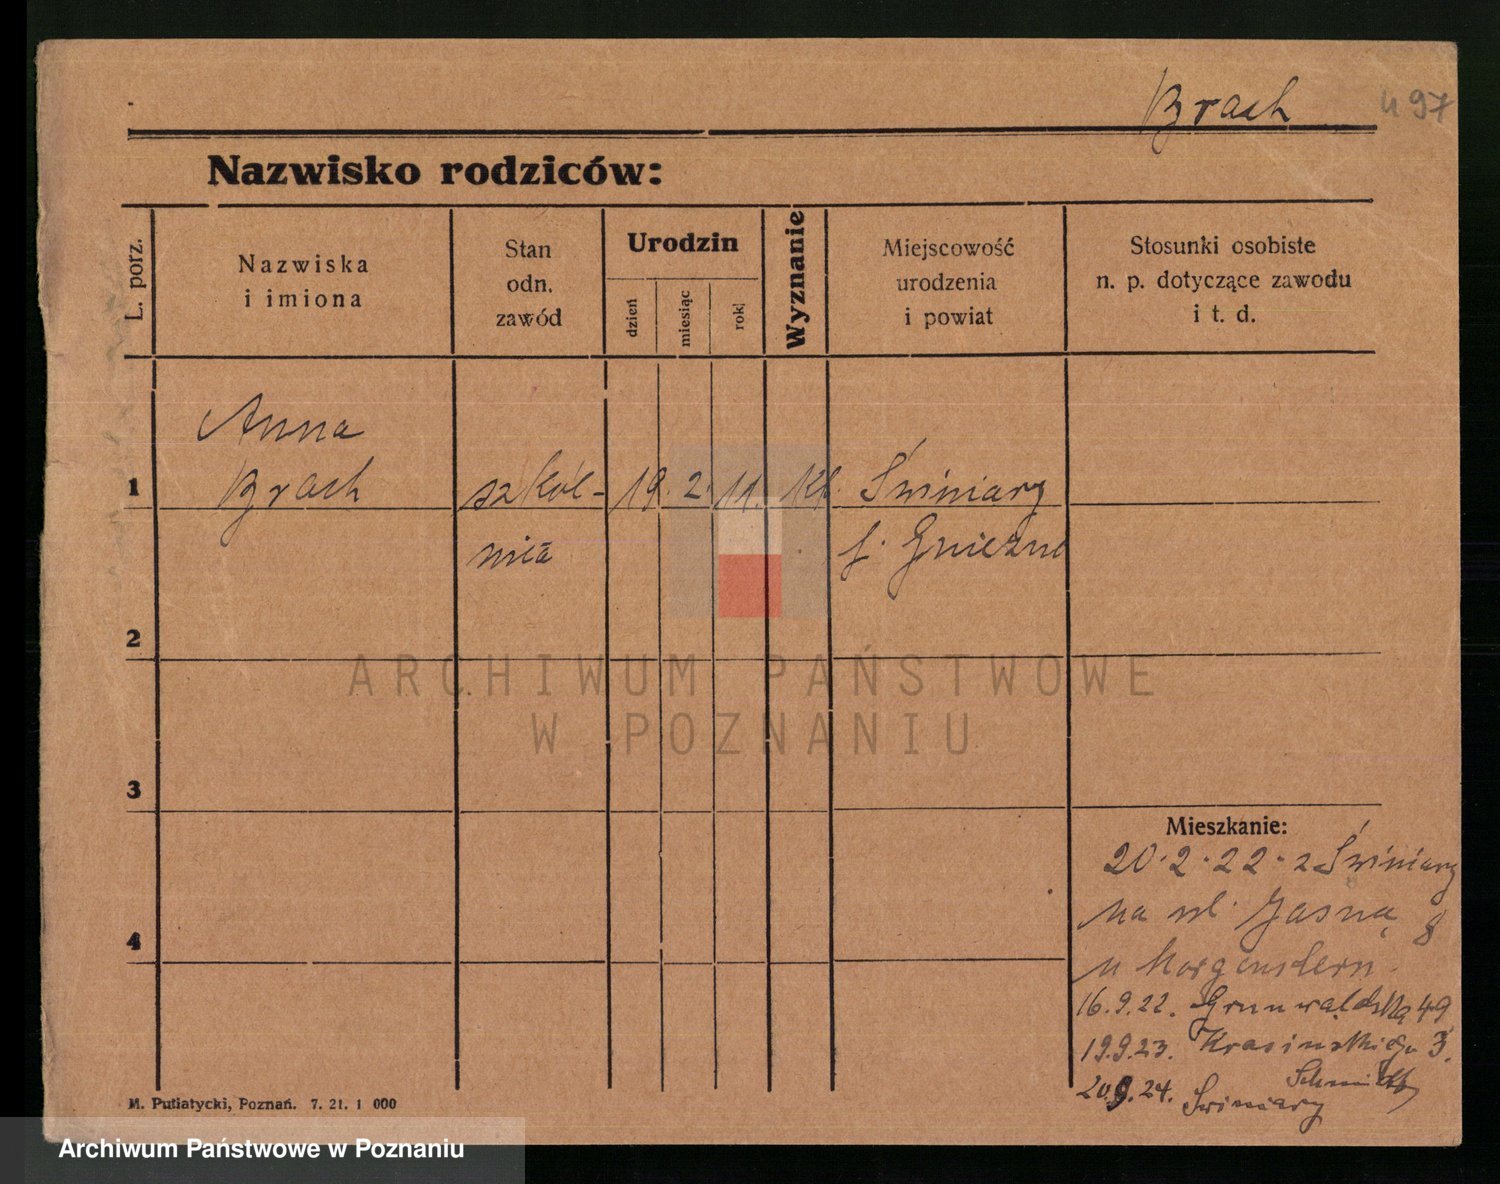 Brach
497
Nazwisko rodziców:
L. porz.
Nazwiska
i imiona
Stan
odn.
zawód
Urodzin
dzień
miesiąc
rok
Wyznanie
Miejscowość
urodzenia
i powiat
Stosunki osobiste
n. p. dotyczące zawodu
i t. d.
Anna
1 Brach szkól- 19. 2. 11. Świniary
nica Gniezno
2
3
4
ARCHIWUM PAŃSTWOWE
W POZNANIU
Mieszkanie:
20.2.22. z Świniary
na ul. Jasną 8
u Morgenstern.
16.9.22. Grunwaldska 49
19.9.23. Krasińskiego 3.
Schmidt
20.9.24. Świniary
M. Putiatycki, Poznań. 7. 21. 1 000
Archiwum Państwowe w Poznaniu